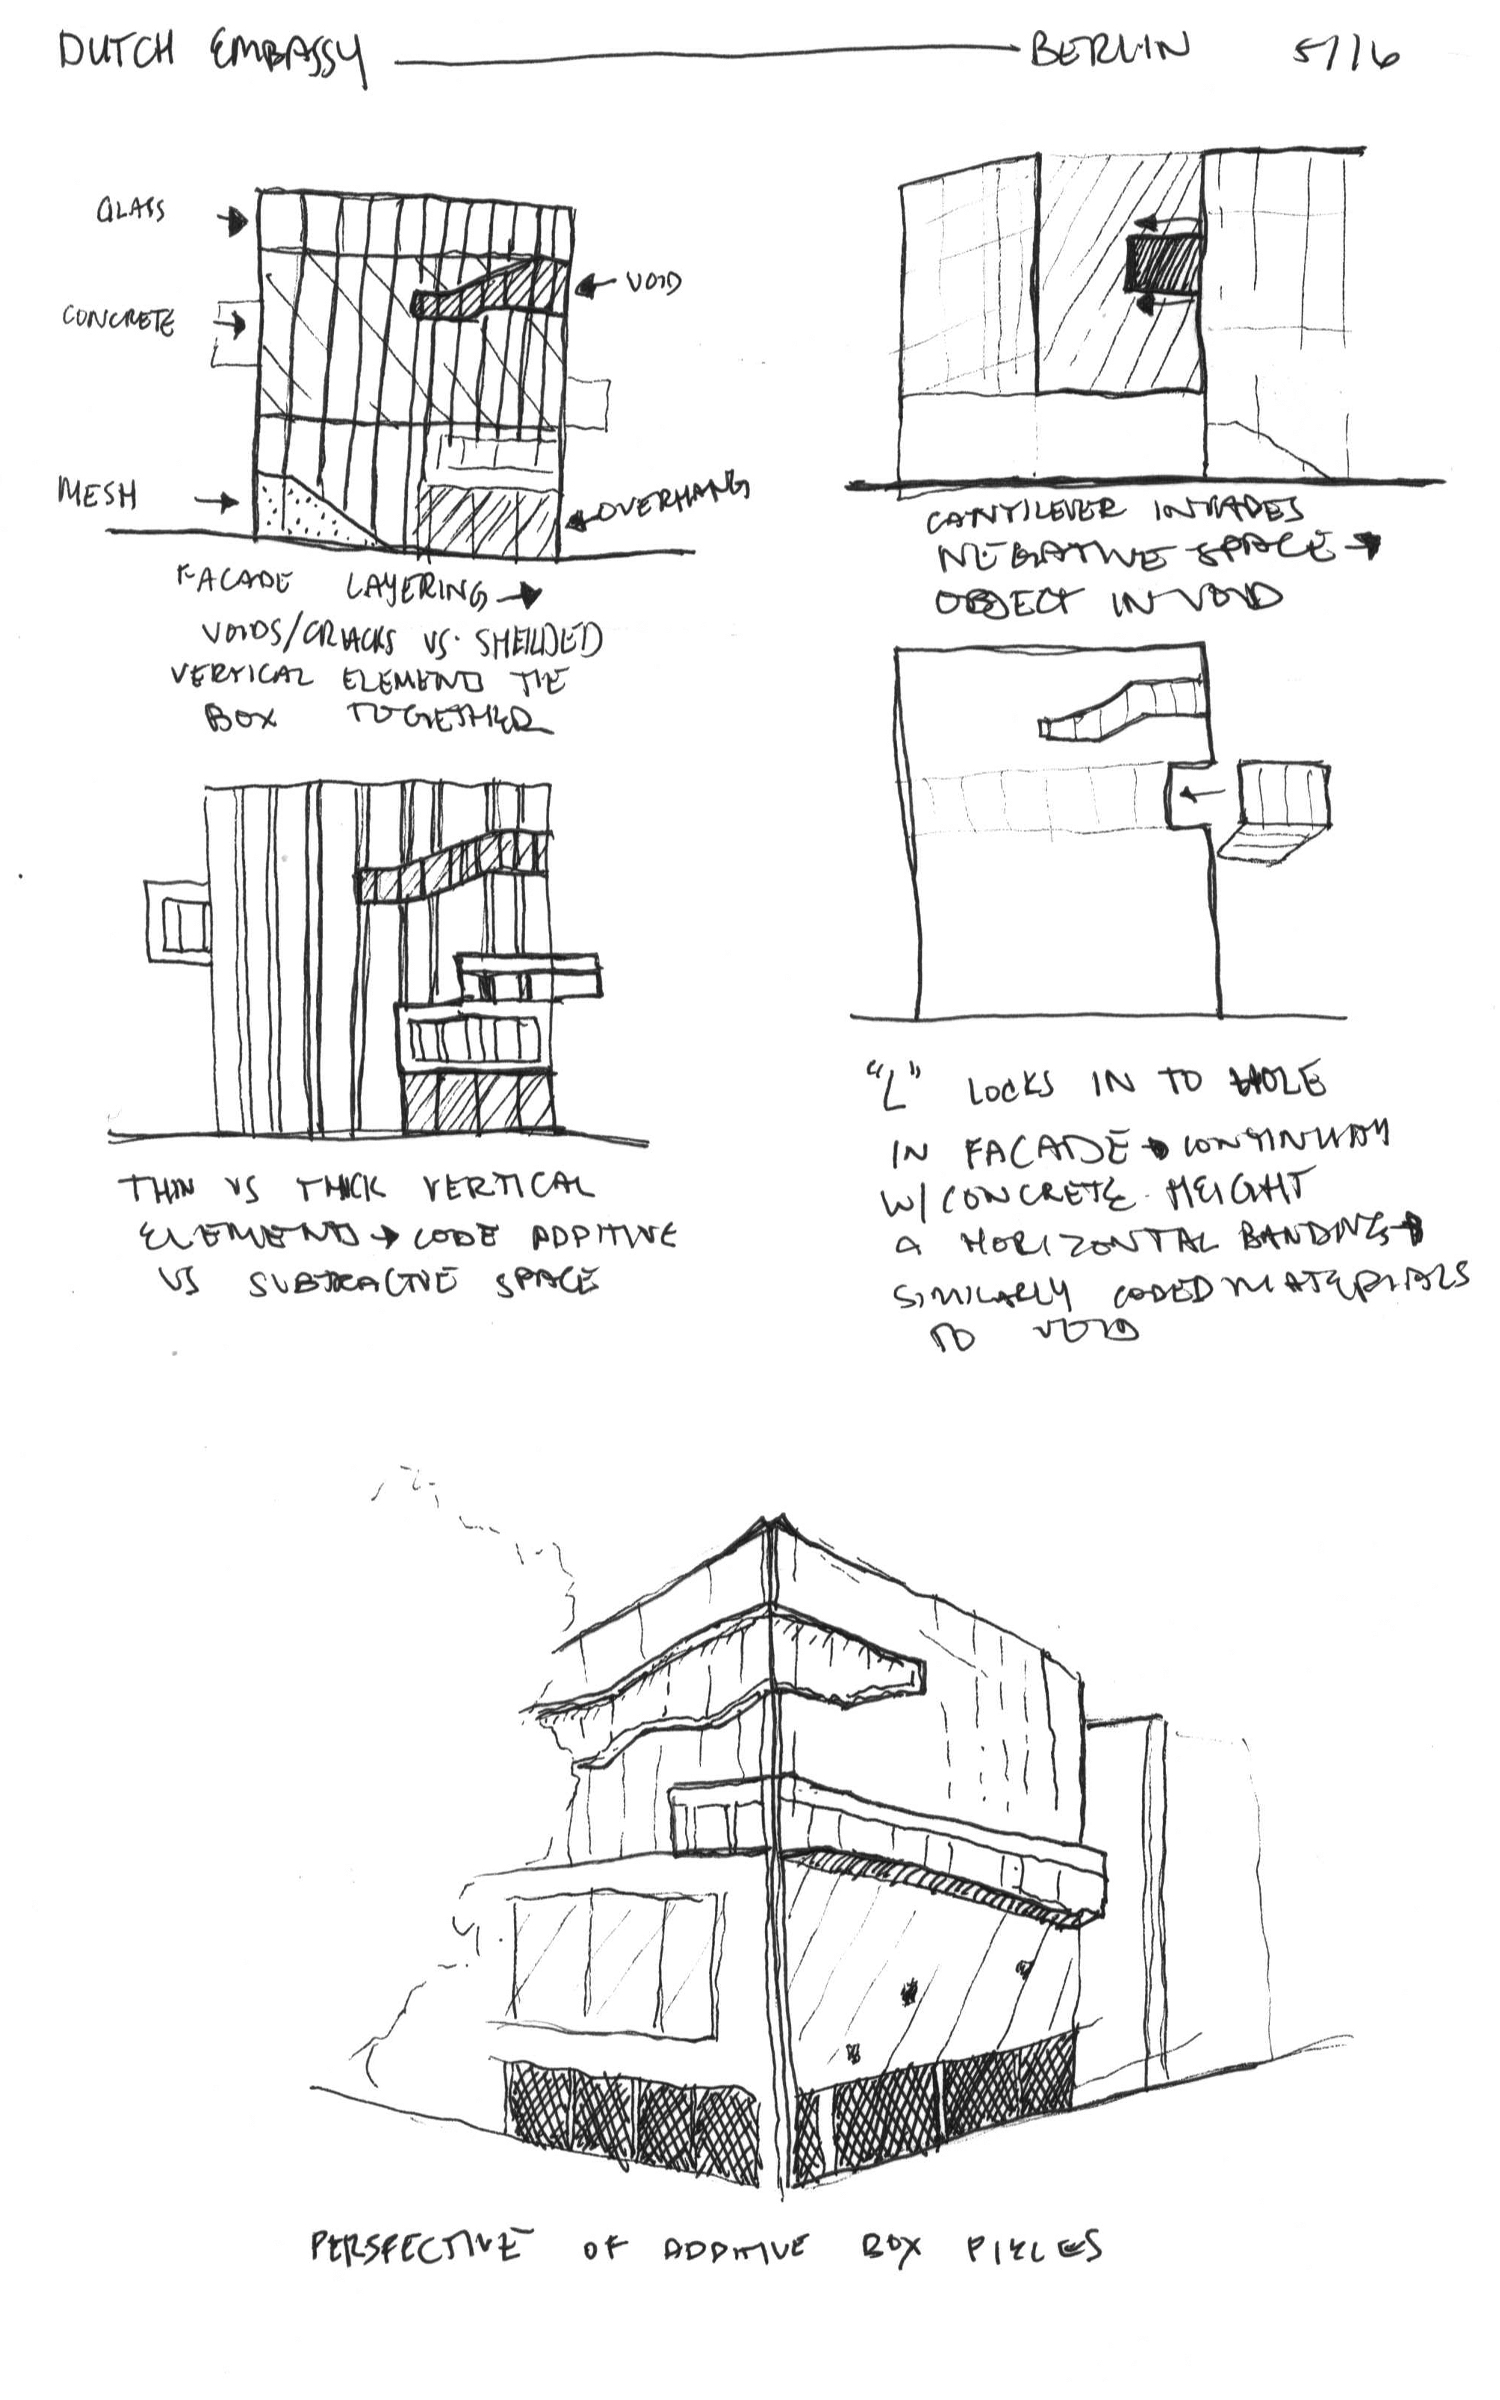 DUTCH EMBASSY — BERLIN 5/16
GLASS
CONCRETE
MESH
VOID
OVERHANG
FACADE LAYERING →
VOIDS/CRACKS VS. SHEILDED
VERTICAL ELEMENTS TIE
BOX TOGETHER
CANTILEVER INVADES
NEGATIVE SPACE →
OBJECT IN VOID
THIN VS THICK VERTICAL
ELEMENTS → CODE ADDITIVE
VS SUBTRACTIVE SPACE
"L" LOCKS IN TO HOLE
IN FACADE → CONTINUITY
W/ CONCRETE HEIGHT
A HORIZONTAL BANDING →
SIMILARLY CODED MATERIALS
TO VOID
PERSPECTIVE OF ADDITIVE BOX PIECES